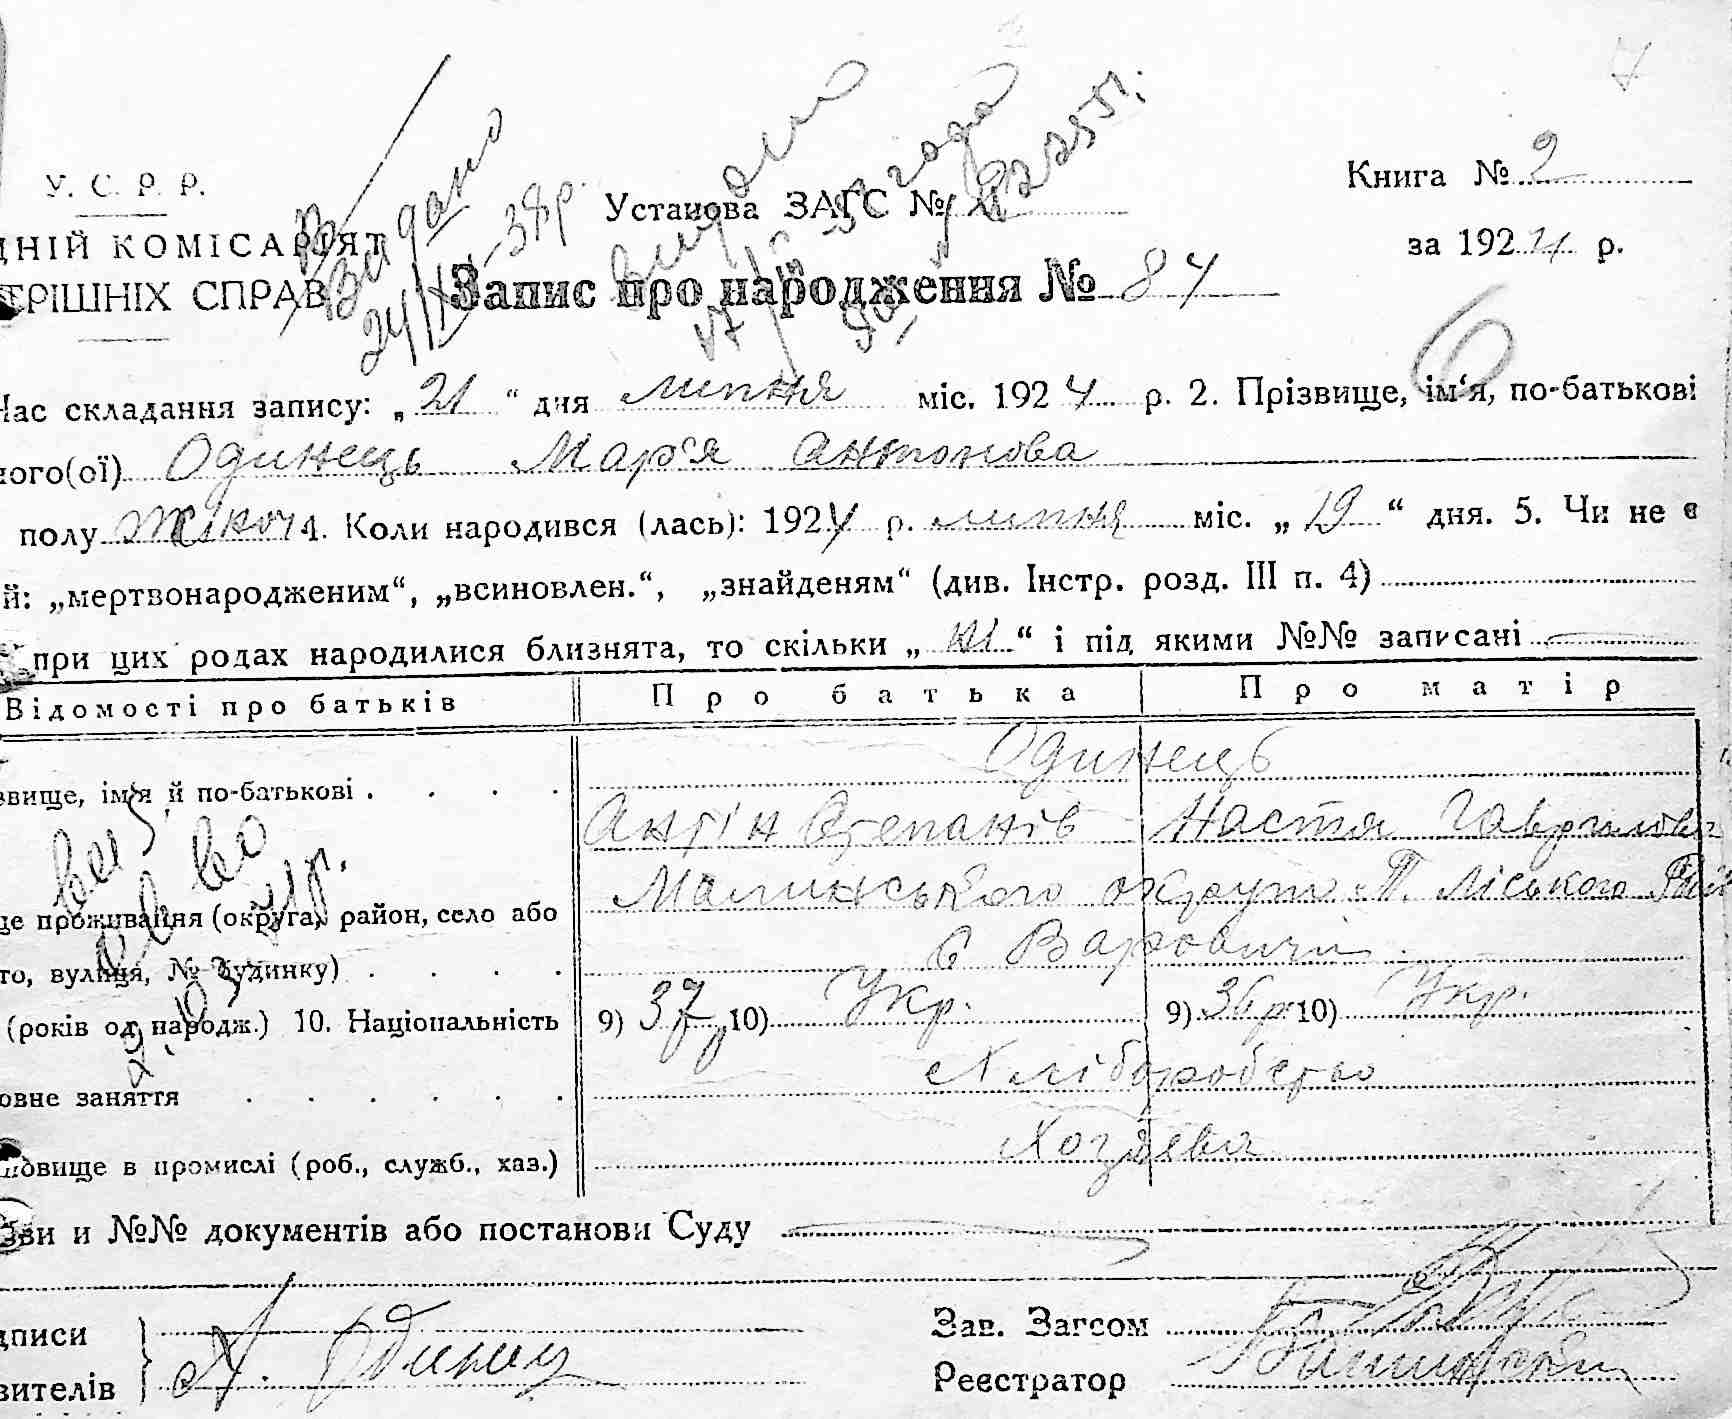 У. С. Р. Р.
Книга № 2
Установа ЗАГС №
ДНІЙ КОМІСАРІЯТ
за 1924 р.
ТРІШНІХ СПРАВ
Запис про народження № 84
Видано
24/IX-38р.
6
Час складання запису: „21“ дня липня міс. 1924 р. 2. Прізвище, ім‘я, по-батькові
ного(ої) Одинець Мар‘я Антонова
полу жіноч 4. Коли народився (лась): 1924 р. липня міс. „19“ дня. 5. Чи не є
й: „мертвонародженим“, „всиновлен.“, „знайденям“ (див. Інстр. розд. III п. 4)
при цих родах народилися близнята, то скільки „ “ і під якими №№ записані
Відомості про батьків Про батька Про матір
Одинець
звище, ім‘я й по-батькові . . . .
Антін Степанів Настя Гаврилова
Малинського округа П. Ліського Рай
це проживання (округа, район, село або
с Варовичі
то, вулиця, № будинку) . . . .
(років од народж.) 10. Національність 9) 37р 10) Укр. 9) 36р 10) Укр.
Хліборобство
овне заняття . . . . . .
Хозяева
новище в промислі (роб., служб., хаз.)
зви и №№ документів або постанови Суду
дписи Зав. Загсом
вителів А. Одинец Реєстратор